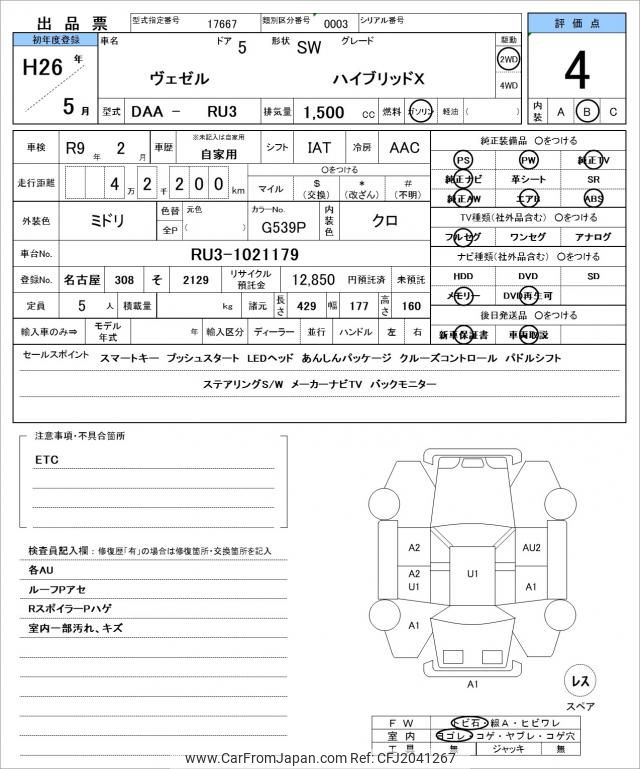 出品票 型式指定番号 17667 類別区分番号 0003 シリアル番号
評価点
初年度登録 車名 ドア 5 形状 SW グレード 駆動
H26 年 ヴェゼル ハイブリッドX 2WD 4
5 月 4WD
型式 DAA － RU3 排気量 1,500 cc 燃料 ガソリン 軽油 ( ) 内装 A B C
車検 R9 年 2 月 車歴 ※未記入は自家用 自家用 シフト IAT 冷房 AAC
純正装備品 〇をつける
PS PW 純正TV
純正ナビ 革シート SR
純正AW エアB ABS
走行距離 4 万 2 千 2 0 0 km 〇をつける
マイル $ (交換) * (改ざん) # (不明)
外装色 ミドリ 色替 全P 元色 ( ) カラーNo. G539P 内装色 クロ
TV種類(社外品含む) 〇をつける
フルセグ ワンセグ アナログ
車台No. RU3-1021179
ナビ種類(社外品含む) 〇をつける
HDD DVD SD
メモリー DVD再生可
登録No. 名古屋 308 そ 2129 リサイクル預託金 12,850 円預託済 未預託
定員 5 人 積載量 kg 諸元 長さ 429 幅 177 高さ 160
後日発送品 〇をつける
新車保証書 車両取説
輸入車のみ⇒ モデル年式 年 輸入区分 ディーラー 並行 ハンドル 左 右
セールスポイント スマートキー プッシュスタート LEDヘッド あんしんパッケージ クルーズコントロール パドルシフト
ステアリングS/W メーカーナビTV バックモニター
注意事項・不具合箇所
ETC
検査員記入欄：修復歴「有」の場合は修復箇所・交換箇所を記入
各AU
ルーフPアセ
RスポイラーPハゲ
室内一部汚れ、キズ
A2 AU2
A2 U1 U1 A1
A1
A1
レス
スペア
FW トビ石・線A・ヒビワレ
室内 ヨゴレ・コゲ・ヤブレ・コゲ穴
工具 無 ジャッキ 無
www.CarFromJapan.com Ref: CFJ2041267